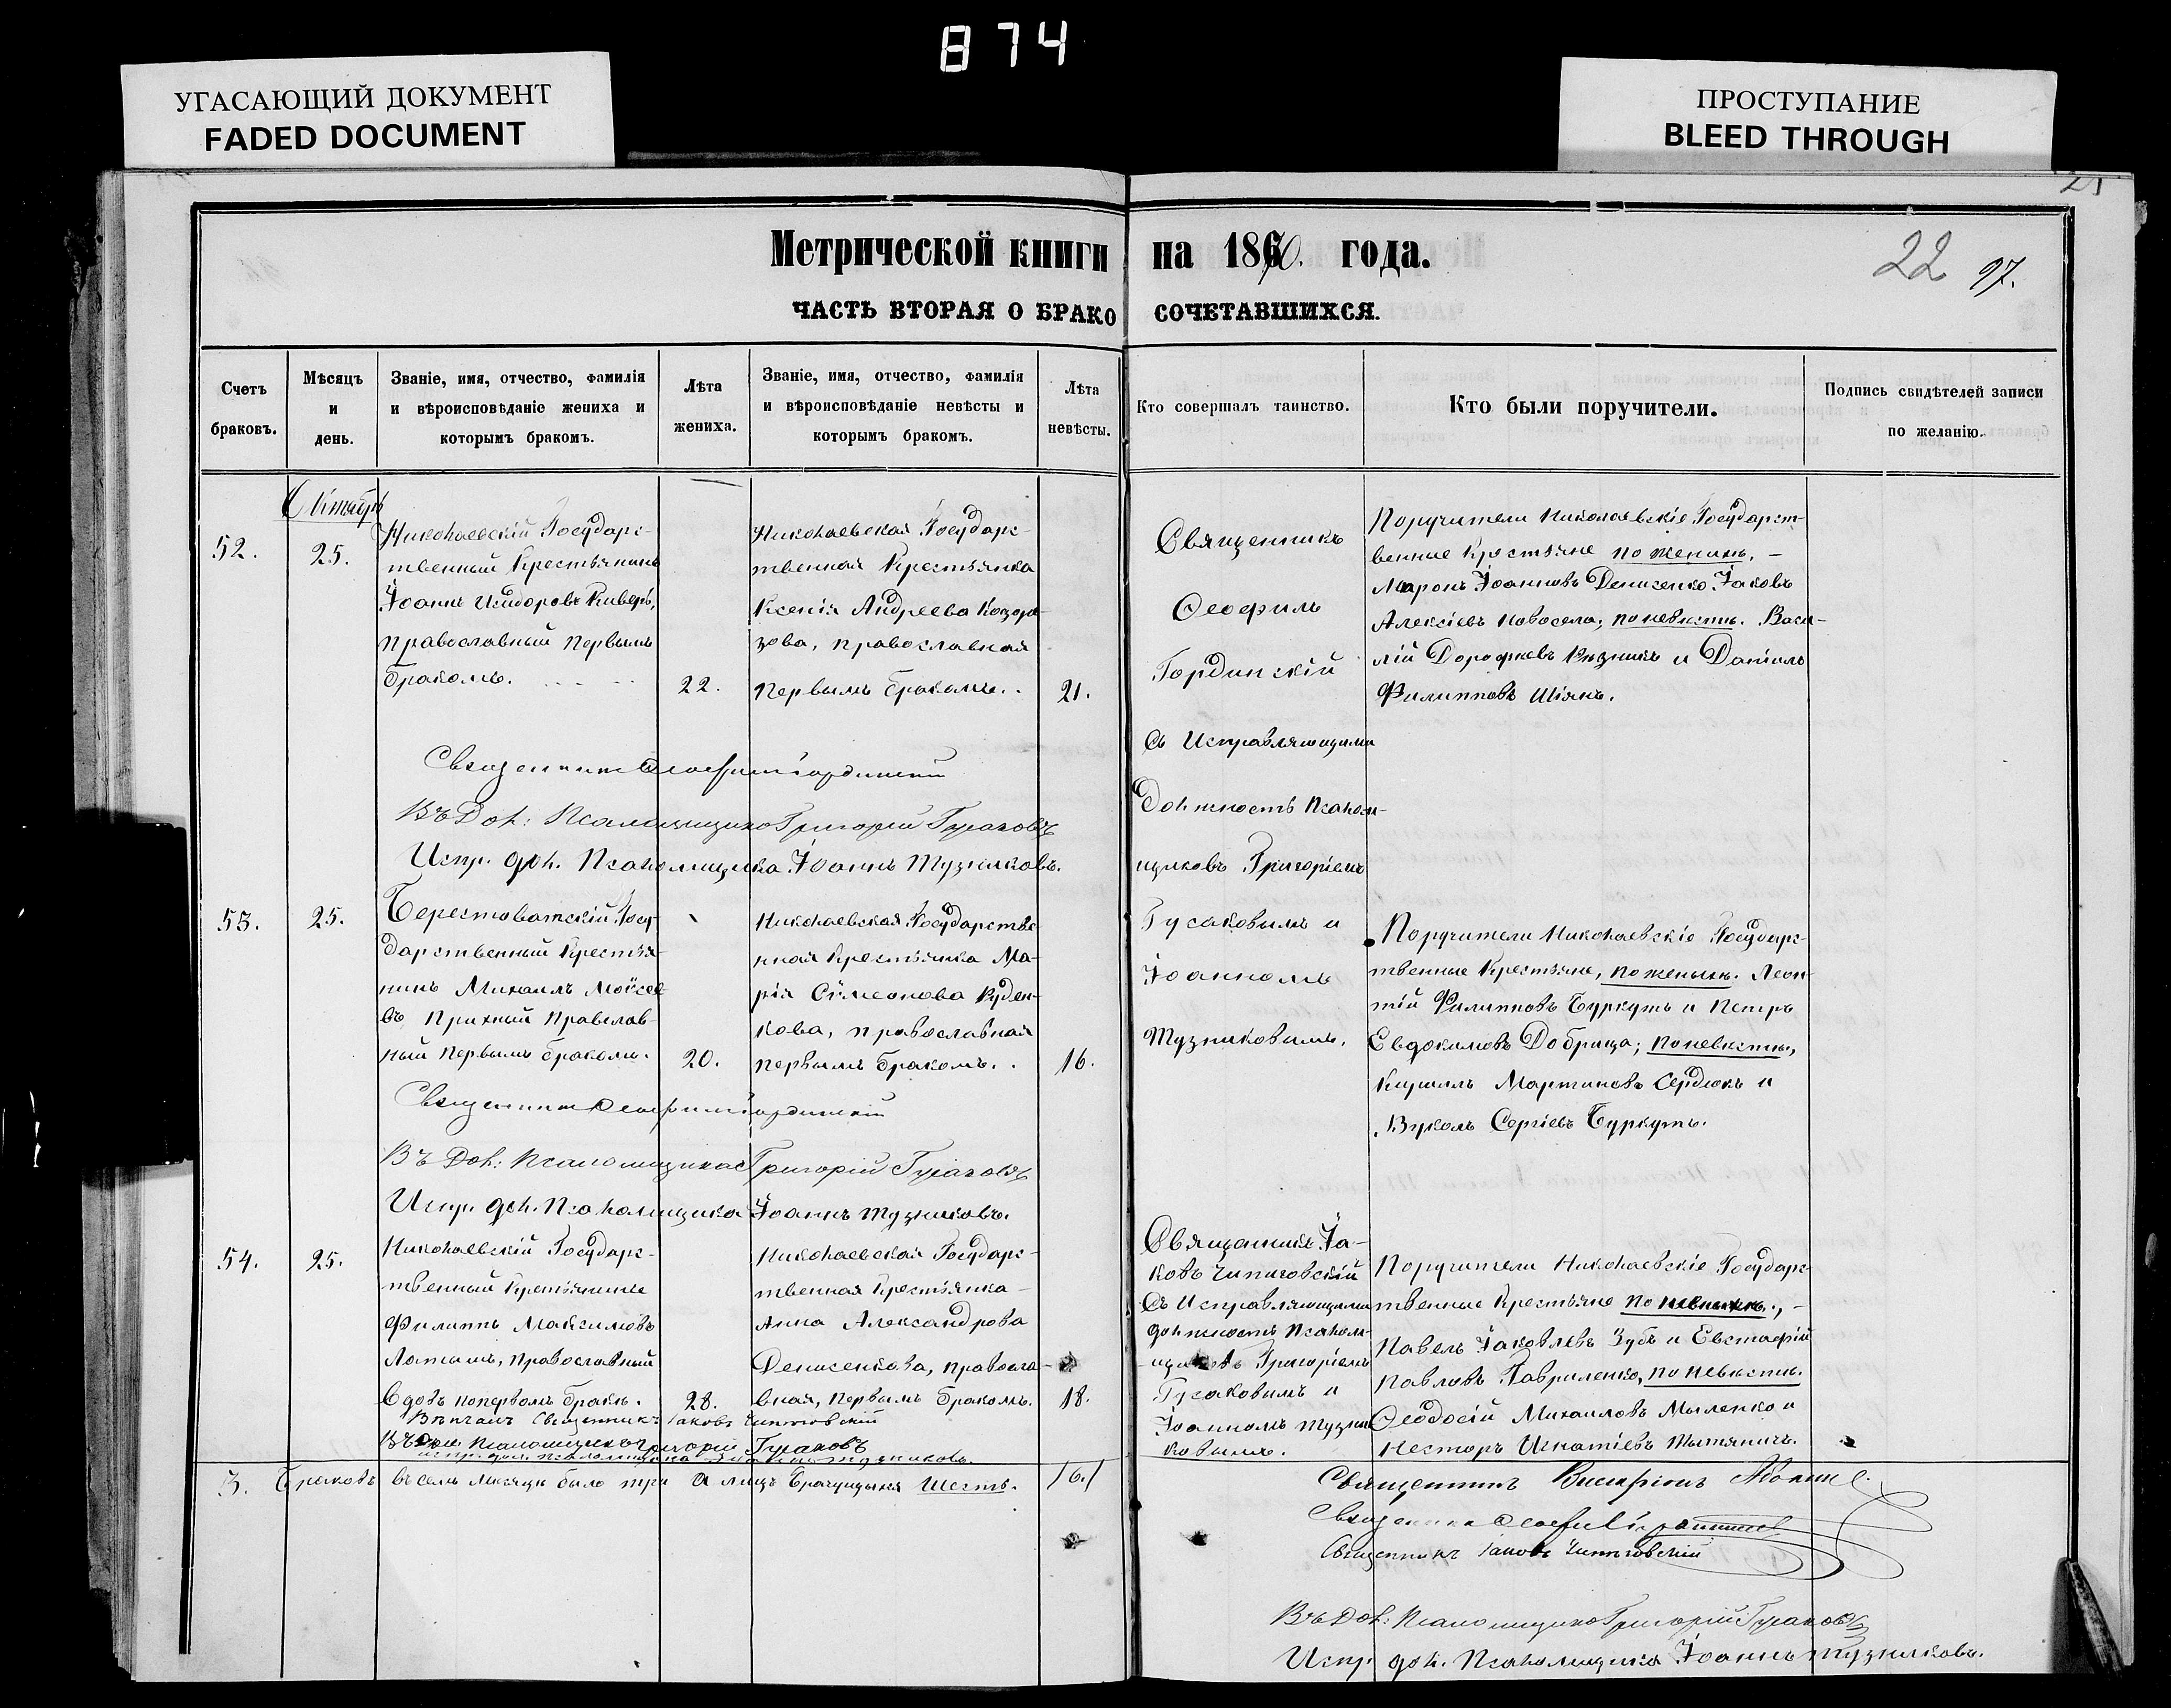 874
УГАСАЮЩИЙ ДОКУМЕНТ
FADED DOCUMENT
ПРОСТУПАНИЕ
BLEED THROUGH
Метрической книги на 1870. года.
22 97.
ЧАСТЬ ВТОРАЯ О БРАКОСОЧЕТАВШИХСЯ.
Счетъ
браковъ.
Мѣсяцъ
и
день.
Званіе, имя, отчество, фамилія
и вѣроисповѣданіе жениха и
которымъ бракомъ.
Лѣта
жениха.
Званіе, имя, отчество, фамилія
и вѣроисповѣданіе невѣсты и
которымъ бракомъ.
Лѣта
невѣсты.
Кто совершалъ таинство.
Кто были поручители.
Подпись свидѣтелей записи
по желанію.
Октябрь
52.
25.
Николаевскій Государс-
твенный Крестьянинъ
Іоаннъ Исидоровъ Киверъ,
православный первымъ
бракомъ.
22.
Николаевская Государс-
твенная Крестьянка
Ксенія Андреева
зова, православная
первымъ бракомъ.
21.
Священникъ
Ѳеофилъ
Гординскій
съ Исправляющими
должность Псалом-
щиковъ Григоріемъ
Гусаковымъ и
Іоанномъ
Тузниковымъ.
Поручители Николаевскіе Государст-
венные Крестьяне по женихѣ, –
Миронъ Іоанновъ Денисенко Іаковъ
Алексіевъ Новосела; по невѣстѣ. Васи-
лій Дорофѣевъ и Даніилъ
Филипповъ Шіянъ.
Священникъ Ѳеофилъ Гординскій
Въ Дол: Псаломщика Григорій Гусаковъ
Испр. дол. Псаломщика Іоаннъ Тузниковъ.
53.
25.
Берестоватскій Госу-
дарственный Крестья-
нинъ Михаилъ Моѵсее-
въ Православ-
ный первымъ бракомъ.
20.
Николаевская Государстве-
нная Крестьянка Ма-
рія Сѵмеонова Руден-
кова, православная
первымъ бракомъ.
16.
Поручители Николаевскіе Государс-
твенные Крестьяне, по женихѣ. Леон-
тій Филипповъ Буркутъ и Петръ
Евдокимовъ Добрица; по невѣстѣ,
Кириллъ Мартиновъ Сердюкъ и
Вуколъ Сергіевъ Буркутъ.
Священникъ Ѳеофилъ Гординскій
Въ Дол: Псаломщика Григорій Гусаковъ
Испр. дол. Псаломщика Іоаннъ Тузниковъ.
54.
25.
Николаевскій Государс-
твенный Крестьянинъ
Филиппъ Максимовъ
Латышъ, православный
вдовъ по первомъ бракѣ.
28.
Николаевская Государс-
твенная Крестьянка –
Анна Александрова
Денисенкова, правосла-
вная, первымъ бракомъ.
18.
Священникъ Іа-
ковъ Чипиговскій
съ Исправляющими
должность Псалом-
щиковъ Григоріемъ
Гусаковымъ и
Іоанномъ Тузни-
ковымъ.
Поручители Николаевскіе Государс-
твенные Крестьяне по женихѣ., –
Павелъ Іаковлевъ Зубъ и Евстафій
Павловъ Гавриленко, по невѣстѣ.
Ѳеодосій Михаиловъ Мыленко и
Несторъ Игнатіевъ
Вѣнчалъ Священникъ Іаковъ Чипиговскій
Въ Дол. Псаломщика Григорій Гусаковъ
Испр. дол. Псаломщика Іоаннъ Тузниковъ.
3. Браковъ въ семъ мѣсяцѣ было три а лицъ Брачущихся Шесть.
Священникъ
Священникъ Ѳеофилъ Гординскій
Священникъ Іаковъ Чипиговскій
Въ Дол: Псаломщика Григорій Гусаковъ
Испр. дол. Псаломщика Іоаннъ Тузниковъ.